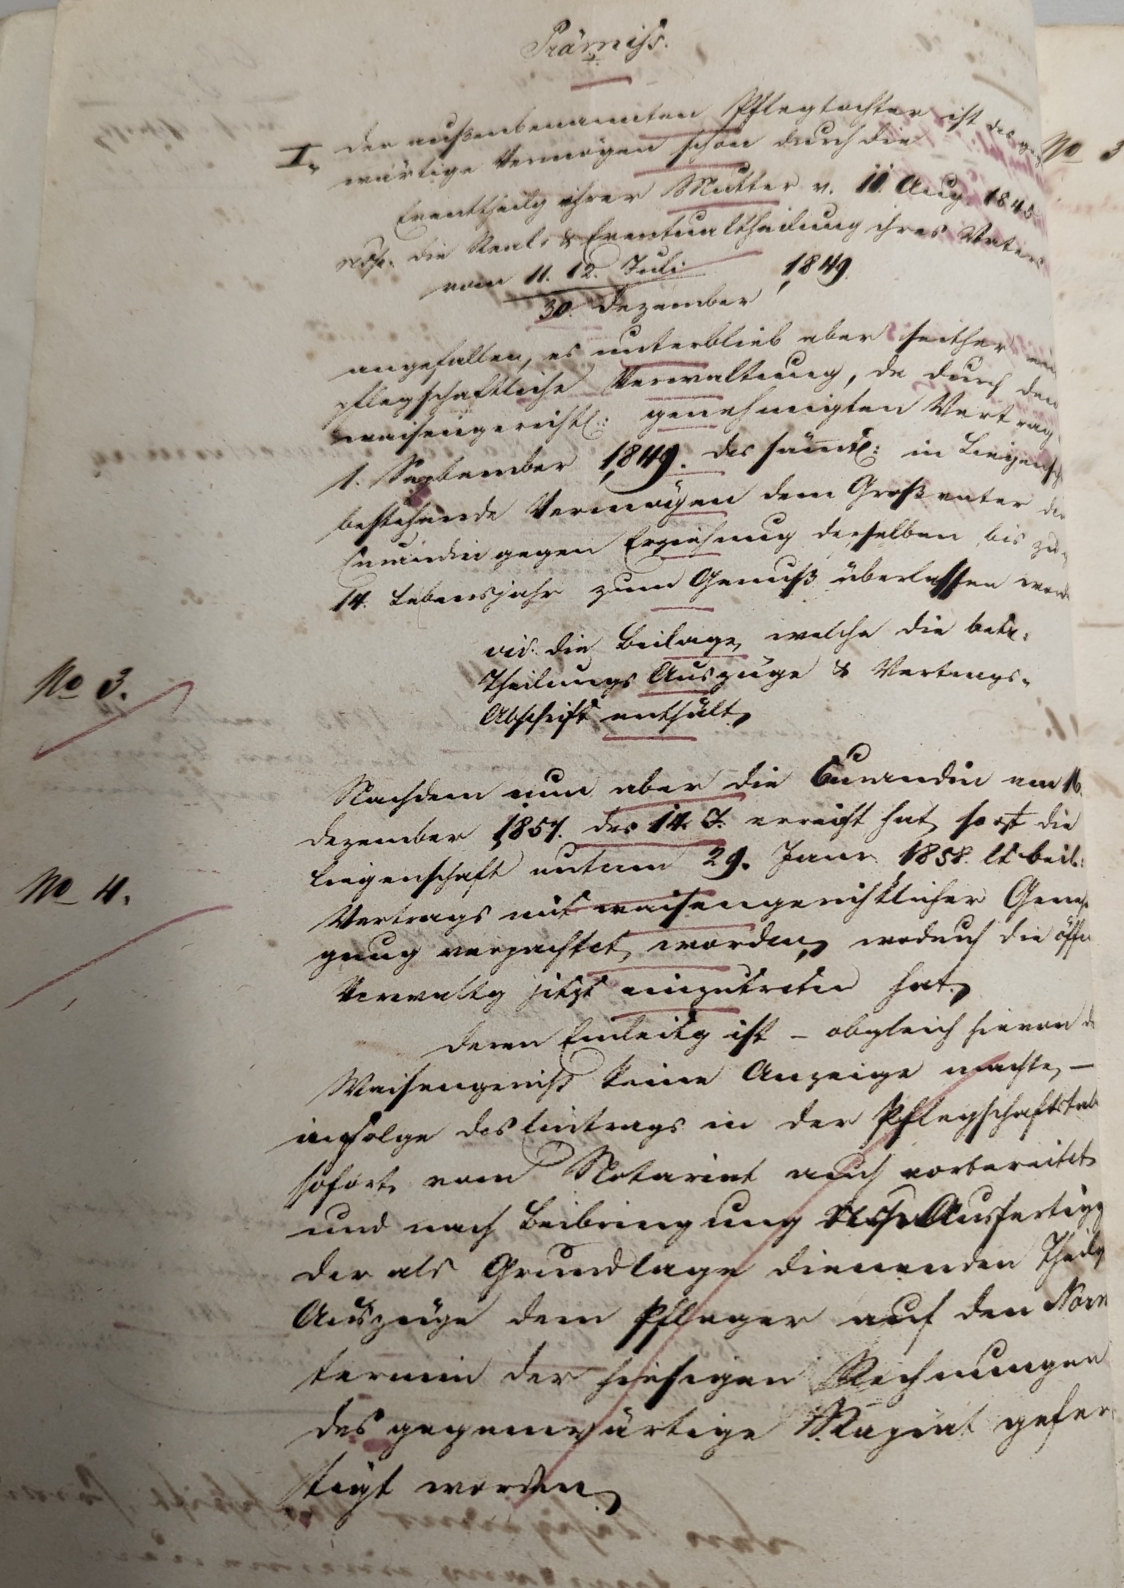 Prämiss.
I. Der außenbenannten Pflegtochter ist das gegen
wärtige Vermögen schon durch die
Eventtheilg ihrer Mutter v. 11. Aug. 1845
resp. die Real- & Eventualtheilung ihres Vaters
vom 11. 12. Juli
30. Dezember 1849.
angefallen, es unterblieb aber seither eine
pflegschaftliche Verwaltung, da durch den
waisengerichtl: genehmigten Vertrag
1. September 1849. das sämtl: in Liegensch
bestehende Vermögen dem Großvater der
Curandin gegen Erziehung derselben bis zum
14. Lebensjahr zum Genuß überlassen word
No 3.
vid. die Beilage, welche die betr:
Theilungs Auszüge & Vertrags-
Abschrift enthält,
Nachdem nun aber die Curandin am 16.
Dezember 1857. das 14. J. erreicht hat, so ist die
No 4.
Liegenschaft unterm 29. Janr. 1858. lt beil:
Vertrags mit waisengerichtlicher Geneh
gung verpachtet worden, wodurch die öffe
Verwaltg jetzt einzutreten hat,
Deren Einleitg ist – obgleich hievon d
Waisengericht keine Anzeige machte, –
infolge des Eintrags in der Pflegschaftstab
sofort vom Notariat auch vorbereitet
und nach Beibringung Ausfertigg
der als Grundlage dienenden Theilg
Auszüge dem Pfleger auf den Norm
termin der hiesigen Rechnungen
das gegenwärtige Rapiat gefer
tigt worden,
No 3